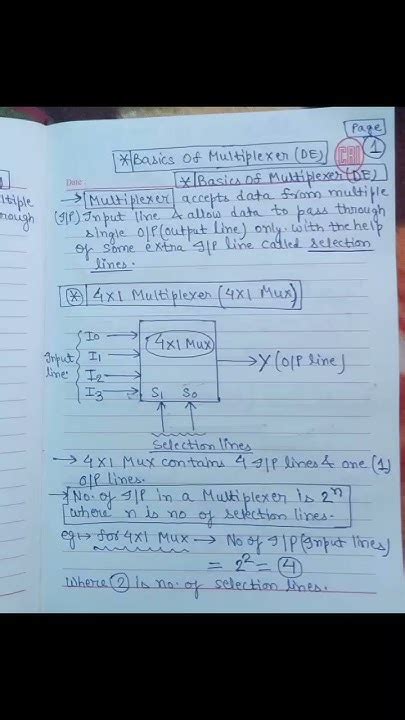 Page
1
* Basics Of Multiplexer (DE)
CBI
Date
* Basics Of Multiplexer (DE)
→ Multiplexer accepts data from multiple
(I/P) Input line & allow data to pass through
single O/P (output line) only with the help
of some extra I/P line called selection
lines.
* 4x1 Multiplexer (4x1 Mux)
I0
4x1 Mux
Input
line
I1
I2
I3
S1 S0
Y (O/P line)
Selection lines
→ 4x1 Mux contains 4 I/P lines & one (1)
O/P lines.
→ No. of I/P in a Multiplexer is 2ⁿ
where n is no. of selection lines.
eg → for 4x1 Mux → No of I/P (Input lines)
= 2² = 4
where 2 is no. of selection lines.
ltiple
rough